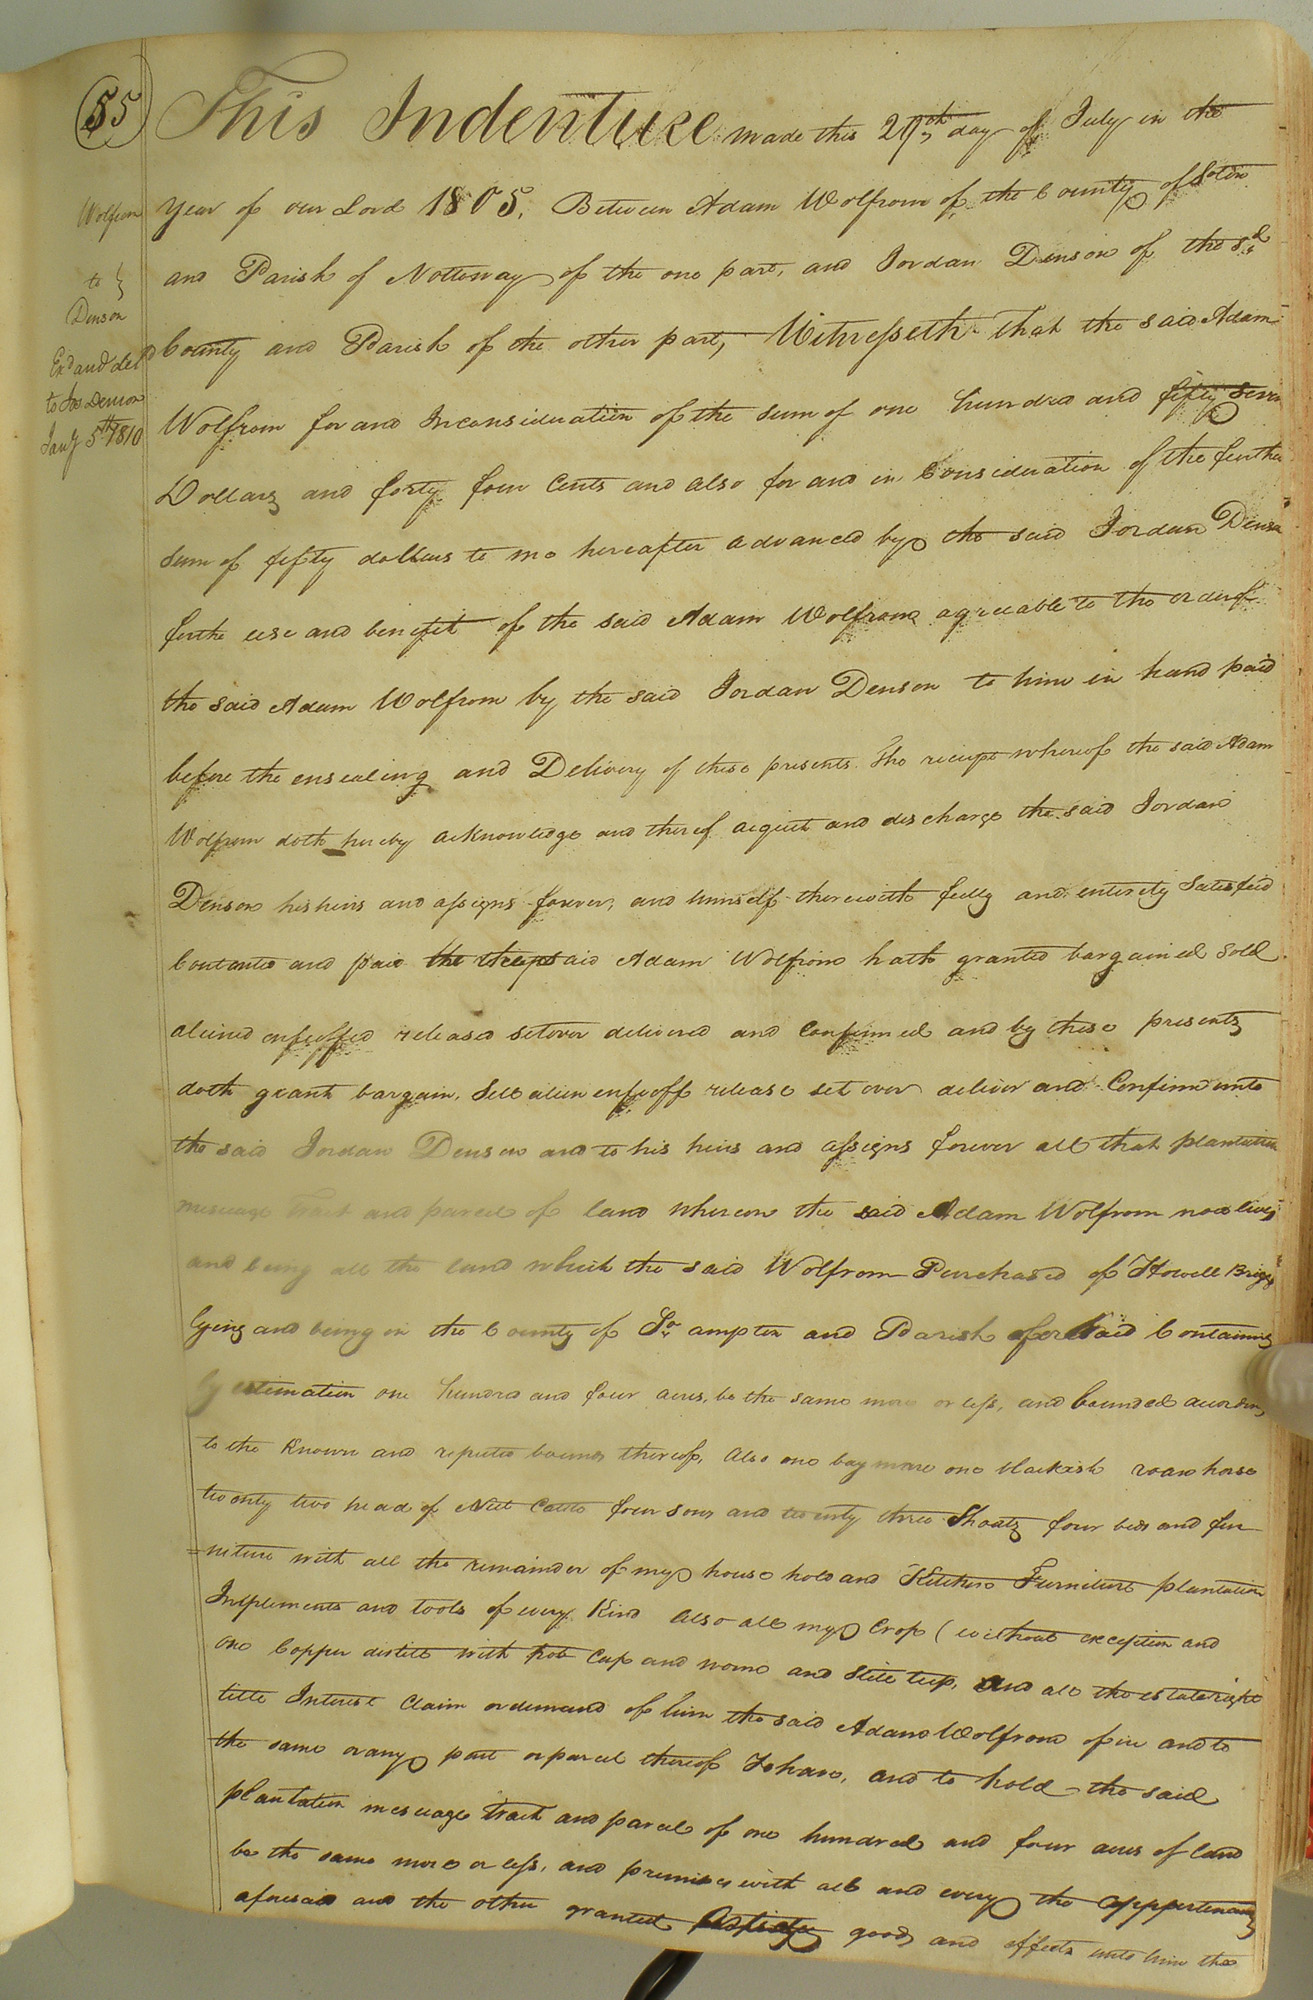 55
This Indenture made this 29th day of July in the
Wolfrom
year of our Lord 1805, Between Adam Wolfrom of the County of Soton
to
and Parish of Nottoway of the one part, and Jordan Denson of the sd
Denson
County and Parish of the other part, Witnesseth that the said Adam
Exd and deld
to Jos Denson
Wolfrom for and Inconsideration of the sum of one hundred and fifty seven
Jany 5th 1810
Dollars and forty four Cents and also for and in Consideration of the further
sum of fifty dollars to me hereafter advanced by the said Jordan Denson
forthe use and benefit of the said Adam Wolfrom agreeable to the order of
the said Adam Wolfrom by the said Jordan Denson to him in hand paid
before the ensealing and Delivery of these presents The reciept whereof the said Adam
Wolfrom doth hereby acknowledge and thereof acquit and discharge the said Jordan
Denson his heirs and assigns forever, and himself therewith fully and entirely Satisfied
Contented and paid the said Adam Wolfrom hath granted bargained Sold
aliened enfeoffed released setover delivered and Confirmed and by these presents
doth grant bargain, Sell alien enfeoff release set over deliver and Confirm unto
the said Jordan Denson and to his heirs and assigns forever all that plantation
mesuage tract and parcel of land whereon the said Adam Wolfrom now lives
and being all the land which the said Wolfrom Purchased of Howell Briggs
lying and being in the County of So ampton and Parish aforesaid Containing
by estimation one hundred and four acres, be the same more or less, and bounded according
to the Known and reputed bounds thereof, Also one bay mare one blackish roan horse
twenty two head of Neet Cattle four sows and twenty three Shoats four beds and fur
=niture with all the remainder of my house hold and Kitchen Furniture plantation
Implements and tools of every Kind Also all my Crop (without exception and
one Copper distill with Cap and worm and Still tub, And all the estate right
title Interest Claim or demand of him the said Adam Wolfrom of in and to
the same or any part or parcel thereof To have, and to hold the said
plantation mesuage tract and parcel of one hundred and four acres of land
be the same more or less, and premises with all and every the appertenances
aforesaid and the other granted goods and effects unto him the